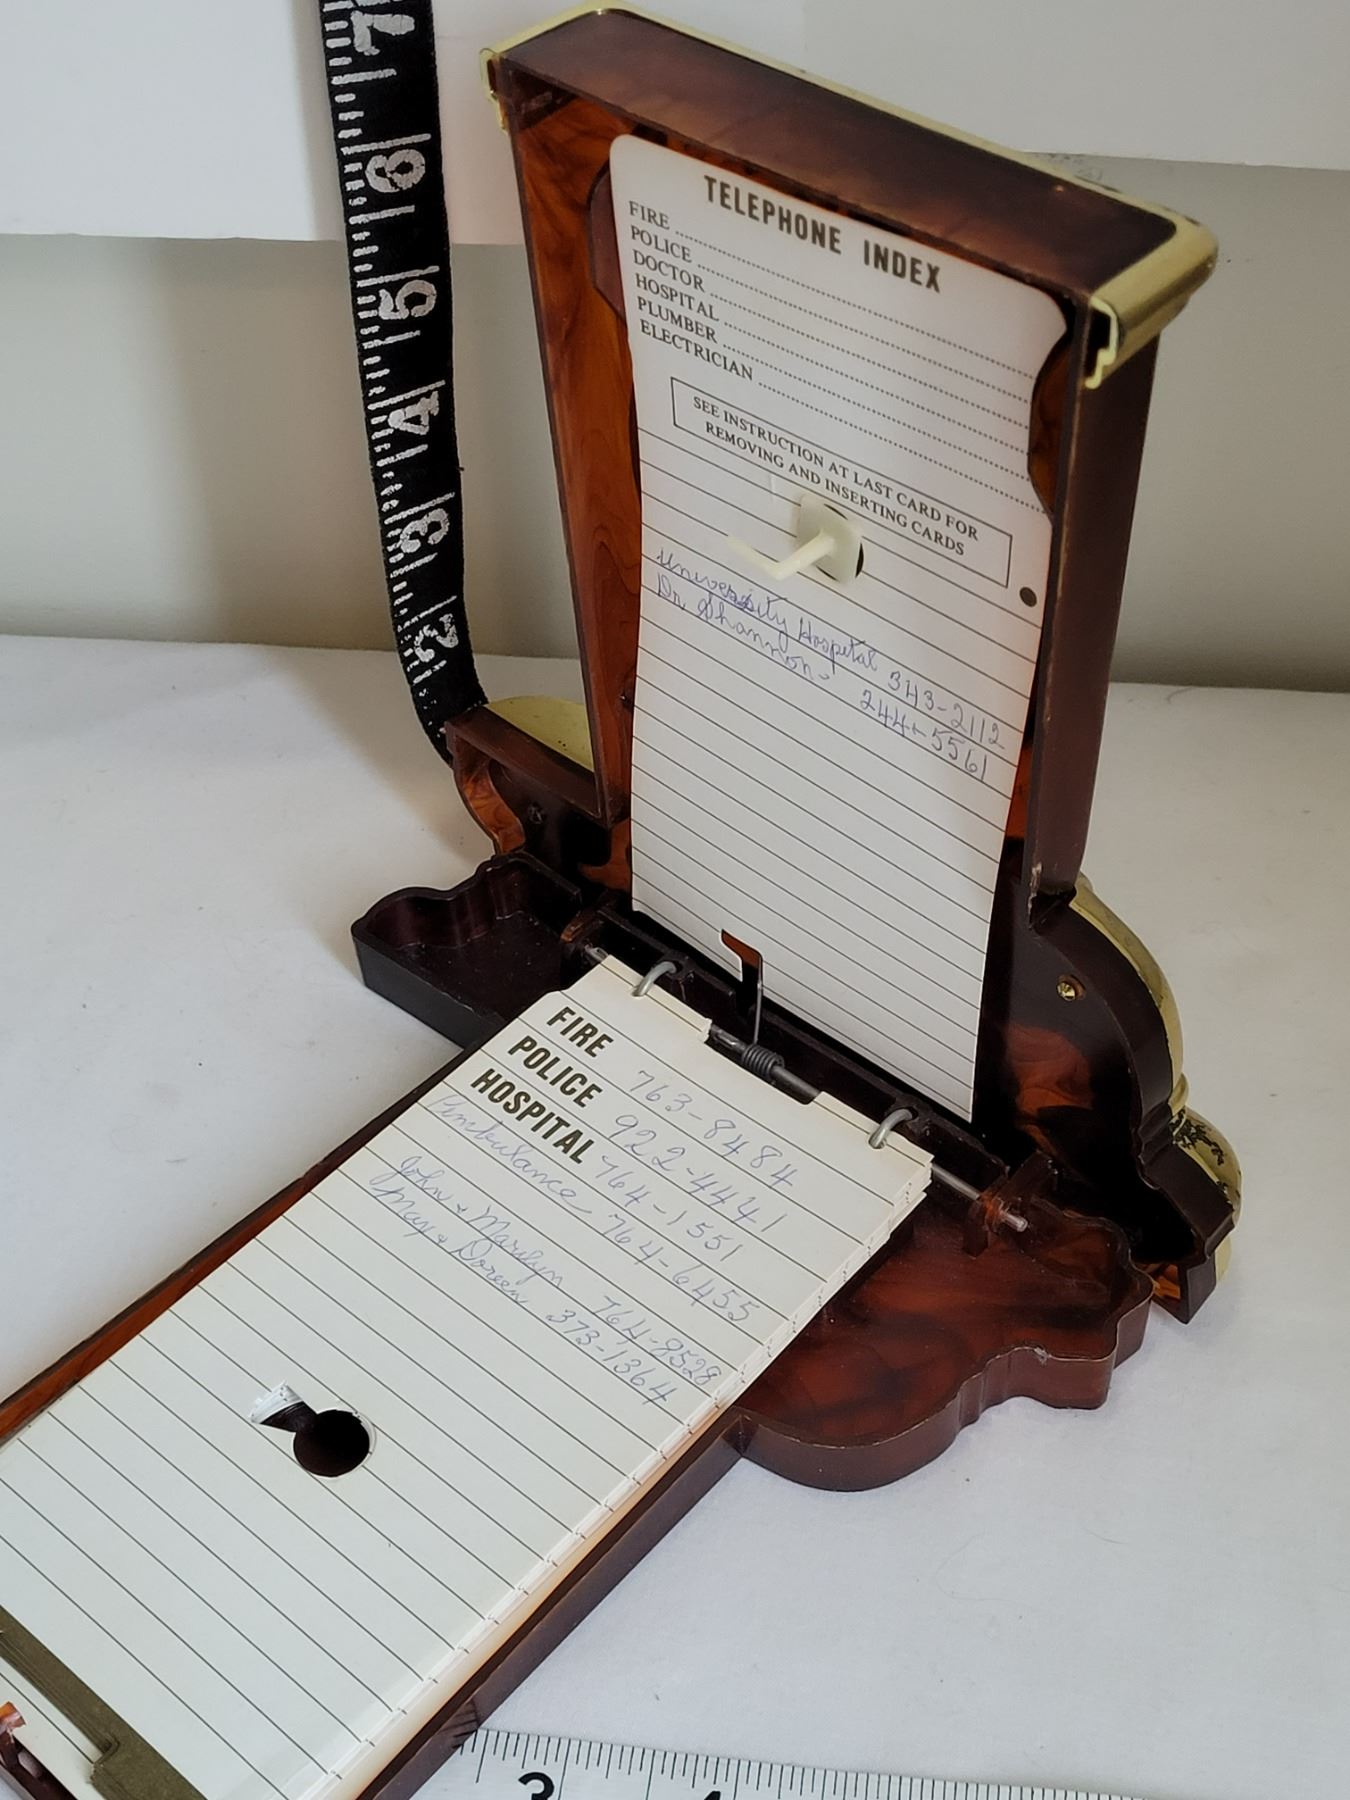 7
6
5
4
3
2
TELEPHONE INDEX
FIRE
POLICE
DOCTOR
HOSPITAL
PLUMBER
ELECTRICIAN
SEE INSTRUCTION AT LAST CARD FOR
REMOVING AND INSERTING CARDS
University Hospital 343-2112
Dr Shannon 244-5561
FIRE 763-8484
POLICE 922-4441
HOSPITAL 764-1551
Ambulance 764-6455
John & Marilyn 764-8528
May & Doreen 373-1364
3
4